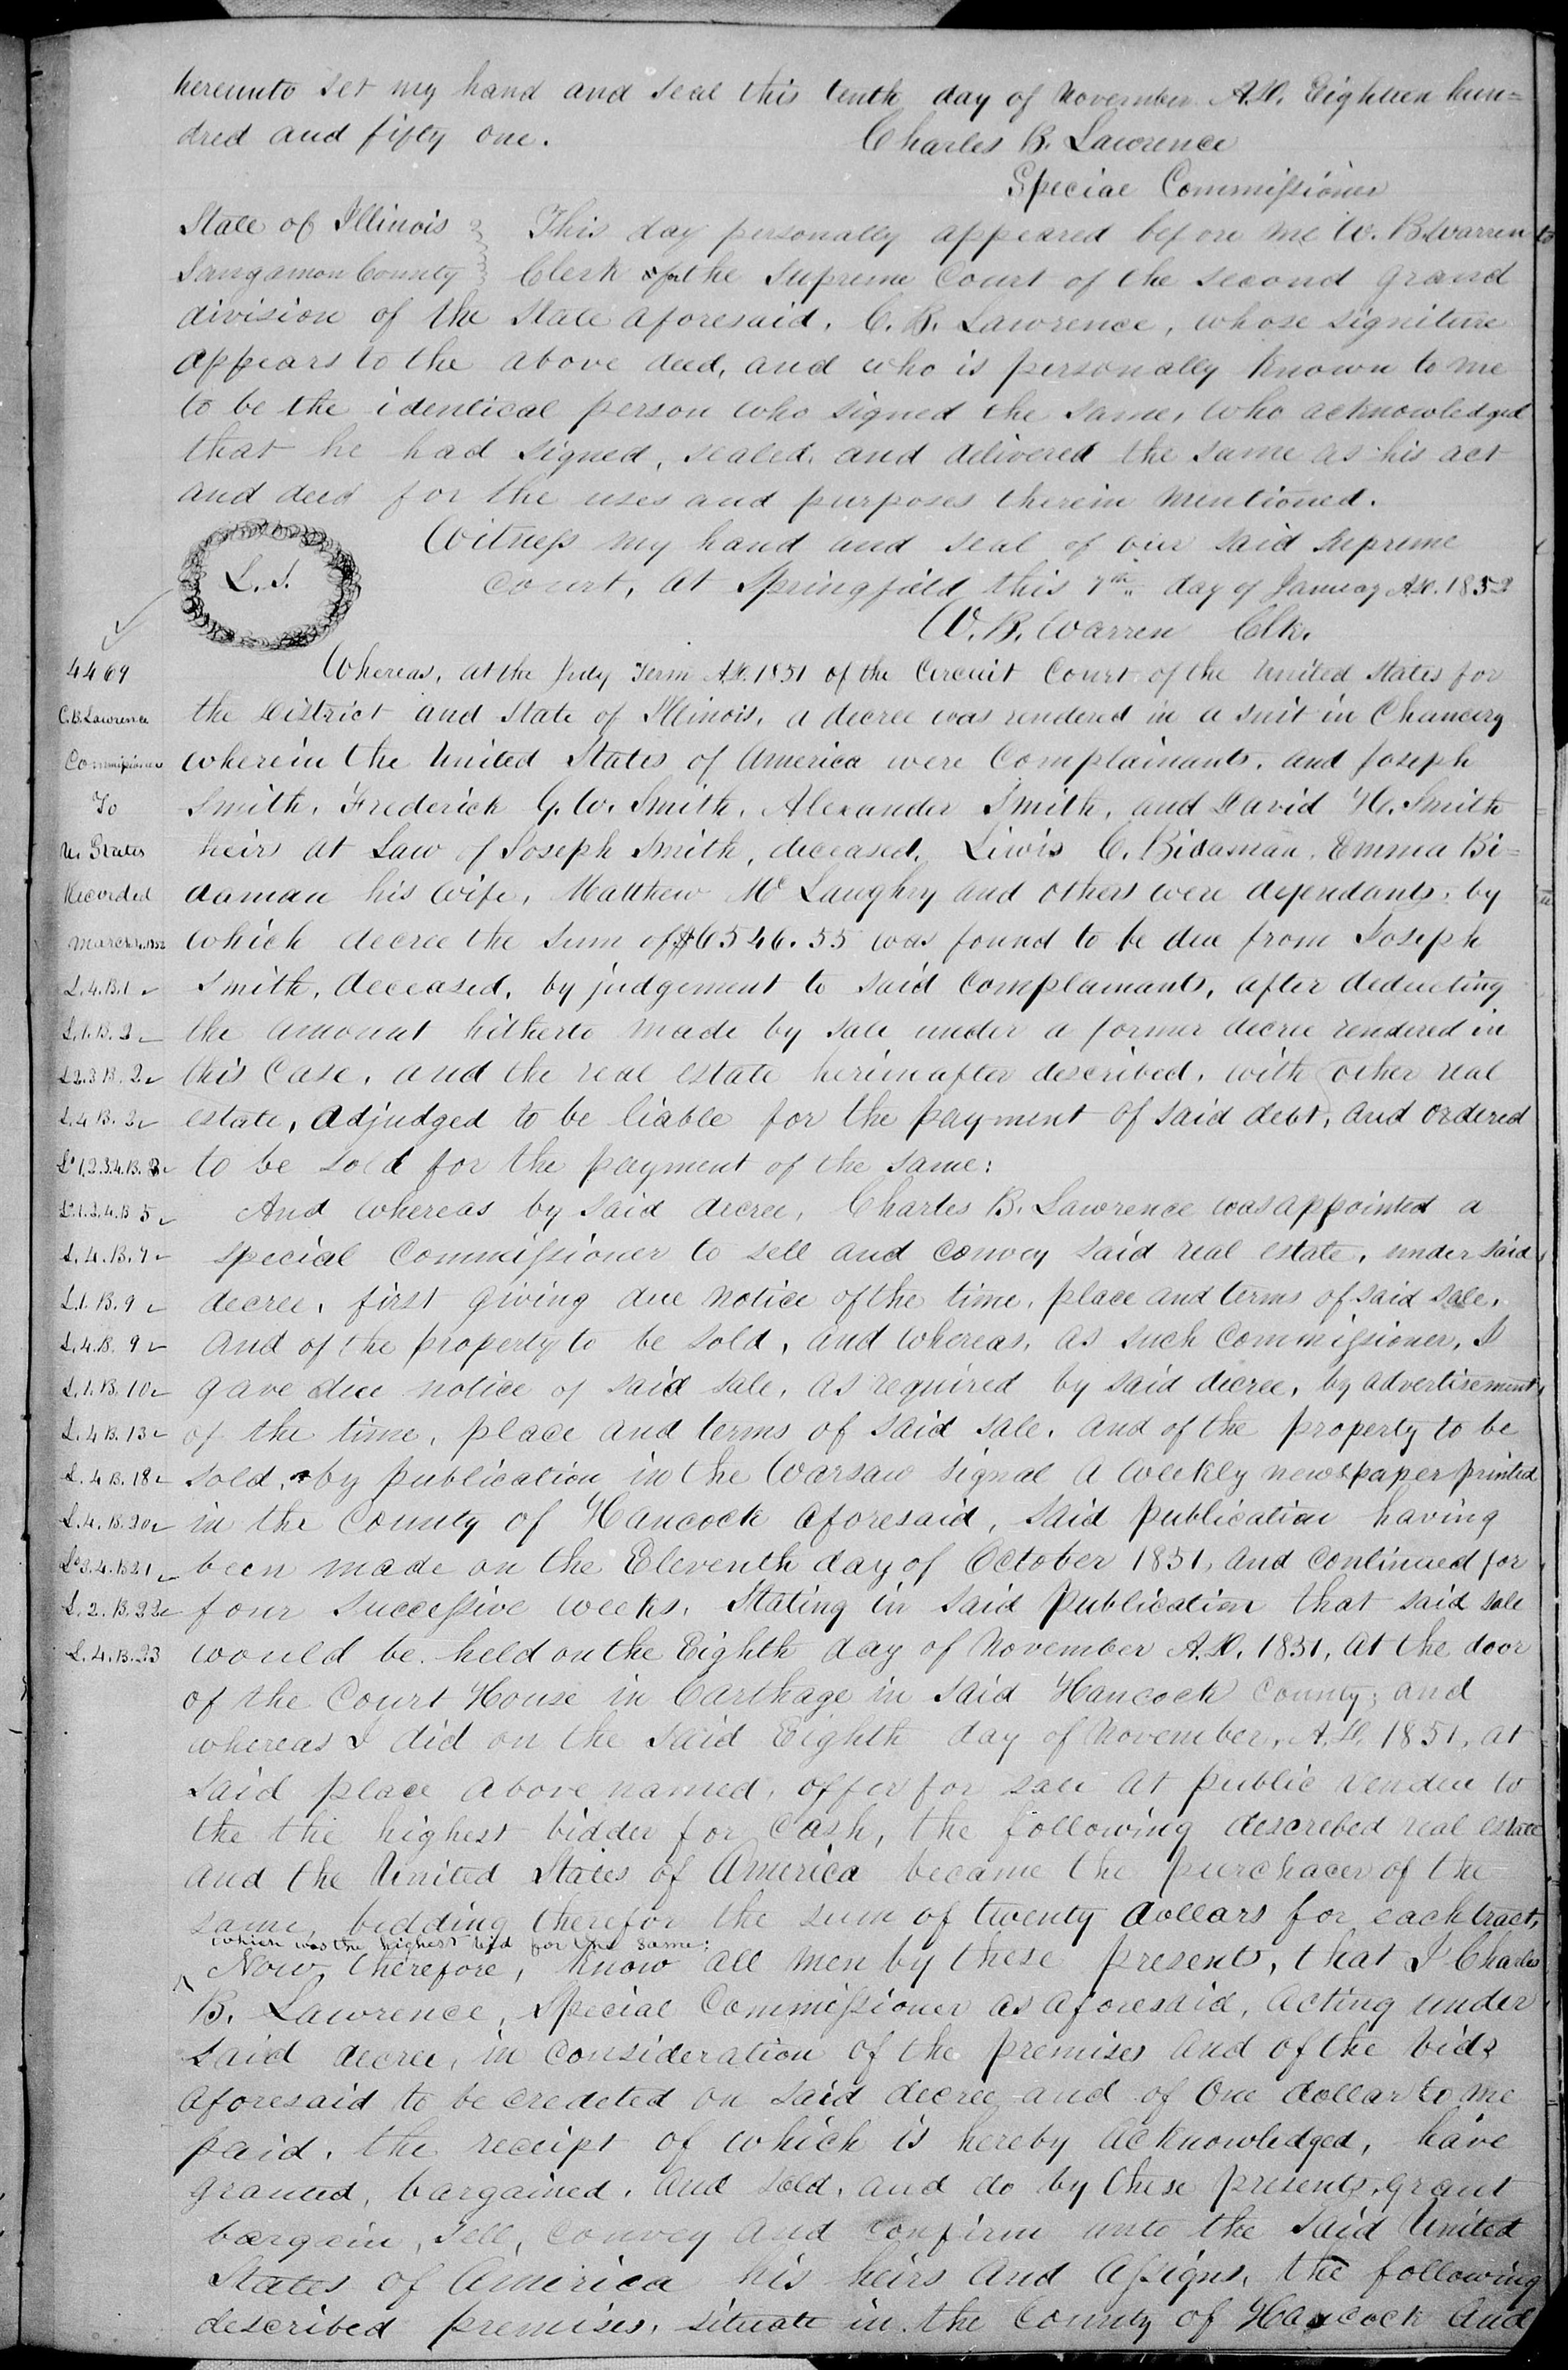 hereunto set my hand and seal this tenth day of November A.D. Eighteen hun=
dred and fifty one. Charles B. Lawrence
Special Commissioner
State of Illinois } This day personally appeared before me W. B. Warren
Sangamon County } Clerk of the Supreme Court of the second grand
division of the State aforesaid, C. B. Lawrence, whose signiture
appears to the above deed, and who is personally known to me
to be the identical person who signed the same, who acknowledged
that he had signed, sealed, and delivered the same as his act
and deed for the uses and purposes therein mentioned.
Witness my hand and seal of our said supreme
L.S.
court, at Springfield this 7th day of January A.D. 1852
W. B. Warren Clk.
4469
C. B. Lawrence
Commissioner
To
U. States
Recorded
L. 4. B. 1
L. 1. B. 2
L 2. 3 B. 2
L. 4 B. 2
Ls 1, 2. 3. 4. B. 3
L. 4. B. 7
L. 1. B. 9
L. 4. B. 9
L. 1. B. 10
L. 4 B. 13
L. 4 B. 18
L. 4. B. 20
Ls 3. 4. B 21
L. 2. B. 22
L. 4. B. 23
Whereas, at the July Term A.D. 1851 of the Circuit Court of the United States for
the District and State of Illinois, a decree was rendered in a suit in Chancery
wherein the United States of America were Complainants, and Joseph
Smith, Frederick G. W. Smith, Alexander Smith, and David H. Smith
heirs at Law of Joseph Smith, deceased, Liwis C. Bidaman, Emma Bi=
daman his wife, Matthew McLaughry and others were defendants, by
which decree the sum of $6546.55 was found to be due from Joseph
Smith, deceased, by judgement to said Complainants, after deducting
the amount hitherto made by sale under a former decree rendered in
this case, and the real estate hereinafter described, with other real
estate, adjudged to be liable for the payment of said debt, and ordered
to be sold for the payment of the same:
And whereas by said decree, Charles B. Lawrence was appointed a
special Commissioner to sell and convey said real estate, under said
decree, first giving due notice of the time, place and terms of said sale,
and of the property to be sold, and whereas, as such Commissioner, I
gave due notice of said sale, as required by said decree, by advertisement
of the time, place and terms of said sale, and of the property to be
sold, by publication in the Warsaw signal a weekly newspaper printed
in the County of Hancock aforesaid, said publication having
been made on the Eleventh day of October 1851, and continued for
four successive weeks, Stating in said publication that said sale
would be held on the Eighth day of November A.D. 1851, at the door
of the Court House in Carthage in said Hancock County; and
whereas I did on the said Eighth day of November, A.D. 1851, at
said place above named, offer for sale at public vendue to
the the highest bidder for cash, the following described real estate
and the United States of America became the purchacer of the
same, bidding therefor the sum of twenty dollars for each tract,
which was the highest bid for the same:
Now, therefore, know all men by these presents, that I Charles
B. Lawrence, Special Commissioner as aforesaid, acting under
said decree, in consideration of the premises and of the bids
aforesaid to be credeted on said decree and of One dollar to me
paid, the receipt of which is hereby acknowledged, have
granted, bargained, and sold, and do by these presents, grant
bargain, sell, convey and confirm unto the said United
States of America his heirs and assigns, the following
described premises, situate in the County of Hancock and